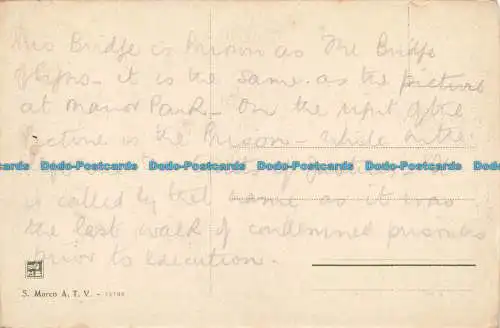 This Bridge is known as The Bridge
of Sighs - it is the same as the picture
at Manor Park - On the right of the
picture is the Prison - while on the
is called by that name as it was
the last walk of condemned prisoners
prior to execution.
Dodo-Postcards Dodo-Postcards Dodo-Postcards Dodo-Postcards
S. Marco A. T. V. -